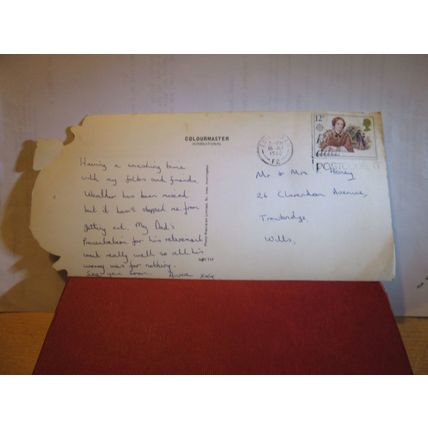 COLOURMASTER
INTERNATIONAL
Having a smashing time
with my folks and friends
Weather has been mixed
but it hasn't stopped me from
getting out. My Dad's
Presentation for his retirement
went really well so all his
worry was for nothing.
See you soon. xxx
Mr & Mrs
26 Clarendon Avenue,
Trowbridge
Wilts,
12p
POSTCODE